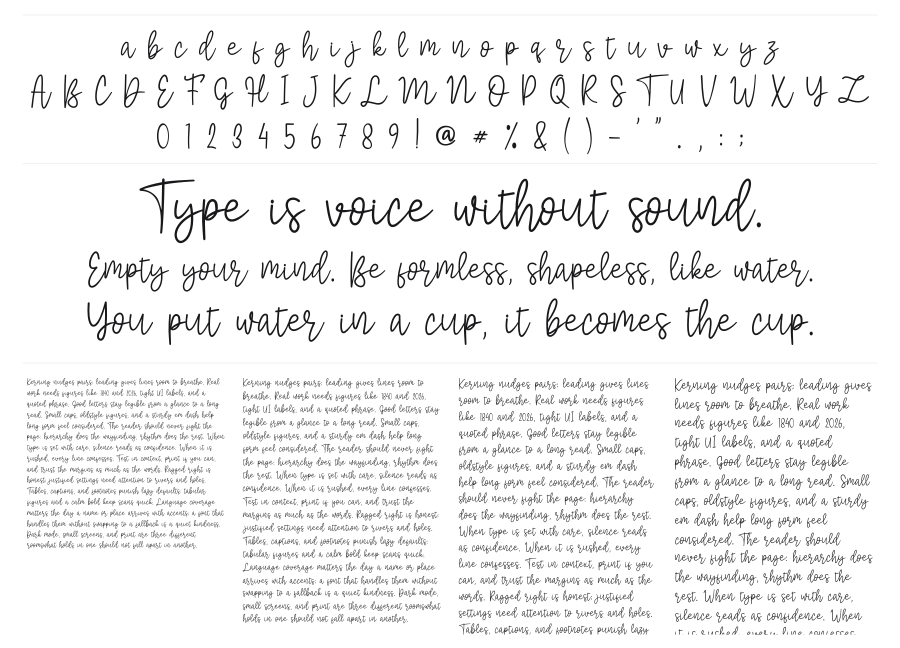 a b c d e f g h i j k l m n o p q r s t u v w x y z
A B C D E F G H I J K L M N O P Q R S T U V W X Y Z
0 1 2 3 4 5 6 7 8 9 ! @ # % & ( ) - ' " . , : ;
Type is voice without sound.
Empty your mind. Be formless, shapeless, like water.
You put water in a cup, it becomes the cup.
Kerning nudges pairs; leading gives lines room to breathe. Real
work needs figures like 1840 and 2026, tight UI labels, and a
quoted phrase. Good letters stay legible from a glance to a long
read. Small caps, oldstyle figures, and a sturdy em dash help
long form feel considered. The reader should never fight the
page: hierarchy does the wayfinding, rhythm does the rest. When
type is set with care, silence reads as confidence. When it is
rushed, every line confesses. Test in context, print if you can,
and trust the margins as much as the words. Ragged right is
honest; justified settings need attention to rivers and holes.
Tables, captions, and footnotes punish lazy defaults; tabular
figures and a calm bold keep scans quick. Language coverage
matters the day a name or place arrives with accents; a font that
handles them without swapping to a fallback is a quiet kindness.
Dark mode, small screens, and print are three different
roomswhat holds in one should not fall apart in another.
Kerning nudges pairs; leading gives lines room to
breathe. Real work needs figures like 1840 and 2026,
tight UI labels, and a quoted phrase. Good letters stay
legible from a glance to a long read. Small caps,
oldstyle figures, and a sturdy em dash help long form
feel considered. The reader should never fight
the page: hierarchy does the wayfinding, rhythm does
the rest. When type is set with care, silence reads as
confidence. When it is rushed, every line confesses.
Test in context, print if you can, and trust the
margins as much as the words. Ragged right is honest;
justified settings need attention to rivers and holes.
Tables, captions, and footnotes punish lazy defaults;
tabular figures and a calm bold keep scans quick.
Language coverage matters the day a name or place
arrives with accents; a font that handles them without
swapping to a fallback is a quiet kindness. Dark mode,
small screens, and print are three different roomswhat
holds in one should not fall apart in another.
Kerning nudges pairs; leading gives lines
room to breathe. Real work needs figures
like 1840 and 2026, tight UI labels, and a
quoted phrase. Good letters stay legible
from a glance to a long read. Small caps,
oldstyle figures, and a sturdy em dash
help long form feel considered. The reader
should never fight the page: hierarchy
does the wayfinding, rhythm does the rest.
When type is set with care, silence reads
as confidence. When it is rushed, every
line confesses. Test in context, print if you
can, and trust the margins as much as the
words. Ragged right is honest; justified
settings need attention to rivers and holes.
Tables, captions, and footnotes punish lazy
Kerning nudges pairs; leading gives
lines room to breathe. Real work
needs figures like 1840 and 2026,
tight UI labels, and a quoted
phrase. Good letters stay legible
from a glance to a long read. Small
caps, oldstyle figures, and a sturdy
em dash help long form feel
considered. The reader should
never fight the page: hierarchy does
the wayfinding, rhythm does the
rest. When type is set with care,
silence reads as confidence. When
it is rushed, every line confesses.